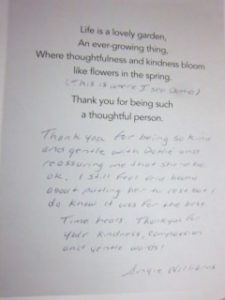 Life is a lovely garden,
An ever-growing thing,
Where thoughtfulness and kindness bloom
like flowers in the spring.
(This is where I see
Thank you for being such
a thoughtful person.
Thank you for being so kind
and gentle with and
reassuring me that she'd be
ok. I still feel very
about putting her to rest but I
do know it was for the best
Time heals. Thankyou for
your kindness, compassion
and gentle words!
Angie Williams